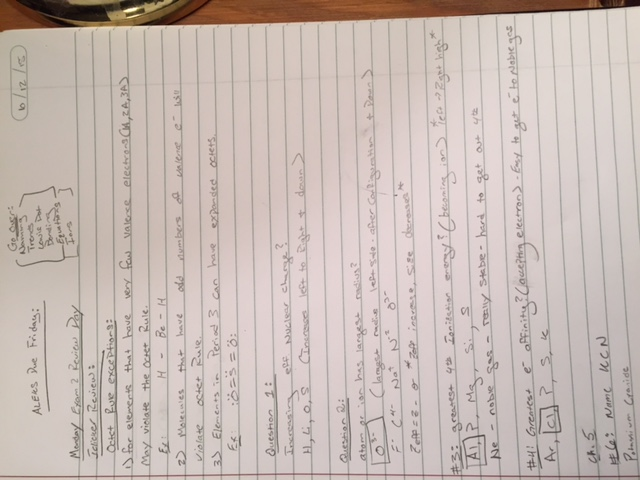 10/12/15
ALEKS Due Friday:
Go over:
Naming
Trends
Lewis Dot
Bonding
Equations
Ions
Monday Exam 2 Review Day
Teacher Review:
Octet Rule exceptions:
1) For elements that have very few valence electrons (1A, 2A, 3A)
May violate the octet Rule.
Ex: H - Be - H
2) Molecules that have odd numbers of valence e⁻ will
violate octet Rule.
3) Elements in Period 3 can have expanded octets.
Ex: :O=S=O:
Question 1:
Increasing eff Nuclear charge?
H, Li, O, S (Increase left to Right + down)
Question 2:
atom or ion has largest radius?
(largest radius left side - after configuration + Down)
Zeff = Z - σ * Zeff increase, size decreases *
#3: greatest 4th Ionization energy? (becoming ion) * left → 2 get high *
Al, P, Mg, Si, S
Ne - noble gas - really stable - hard to get out 4th
#4: Greatest e⁻ affinity? (accepting electron) - Easy to get e⁻ to Noble gas
Ar, Cl, P, S, K
Ch. 5
#6: Name KCN
Potassium Cyanide